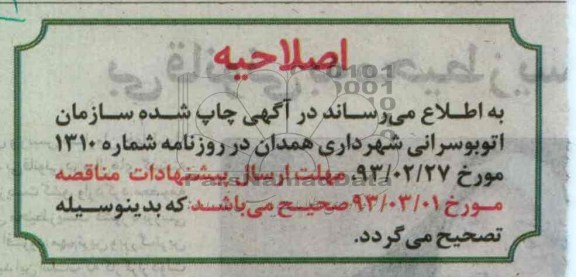 اصلاحیه
به اطلاع می‌رساند در آگهی چاپ شده سازمان
اتوبوسرانی شهرداری همدان در روزنامه شماره ۱۳۱۰
مورخ ۹۳/۰۲/۲۷، مهلت ارسال پیشنهادات مناقصه
مورخ ۹۳/۰۳/۰۱ صحیح می‌باشد که بدینوسیله
تصحیح می‌گردد.
ParsNamadData